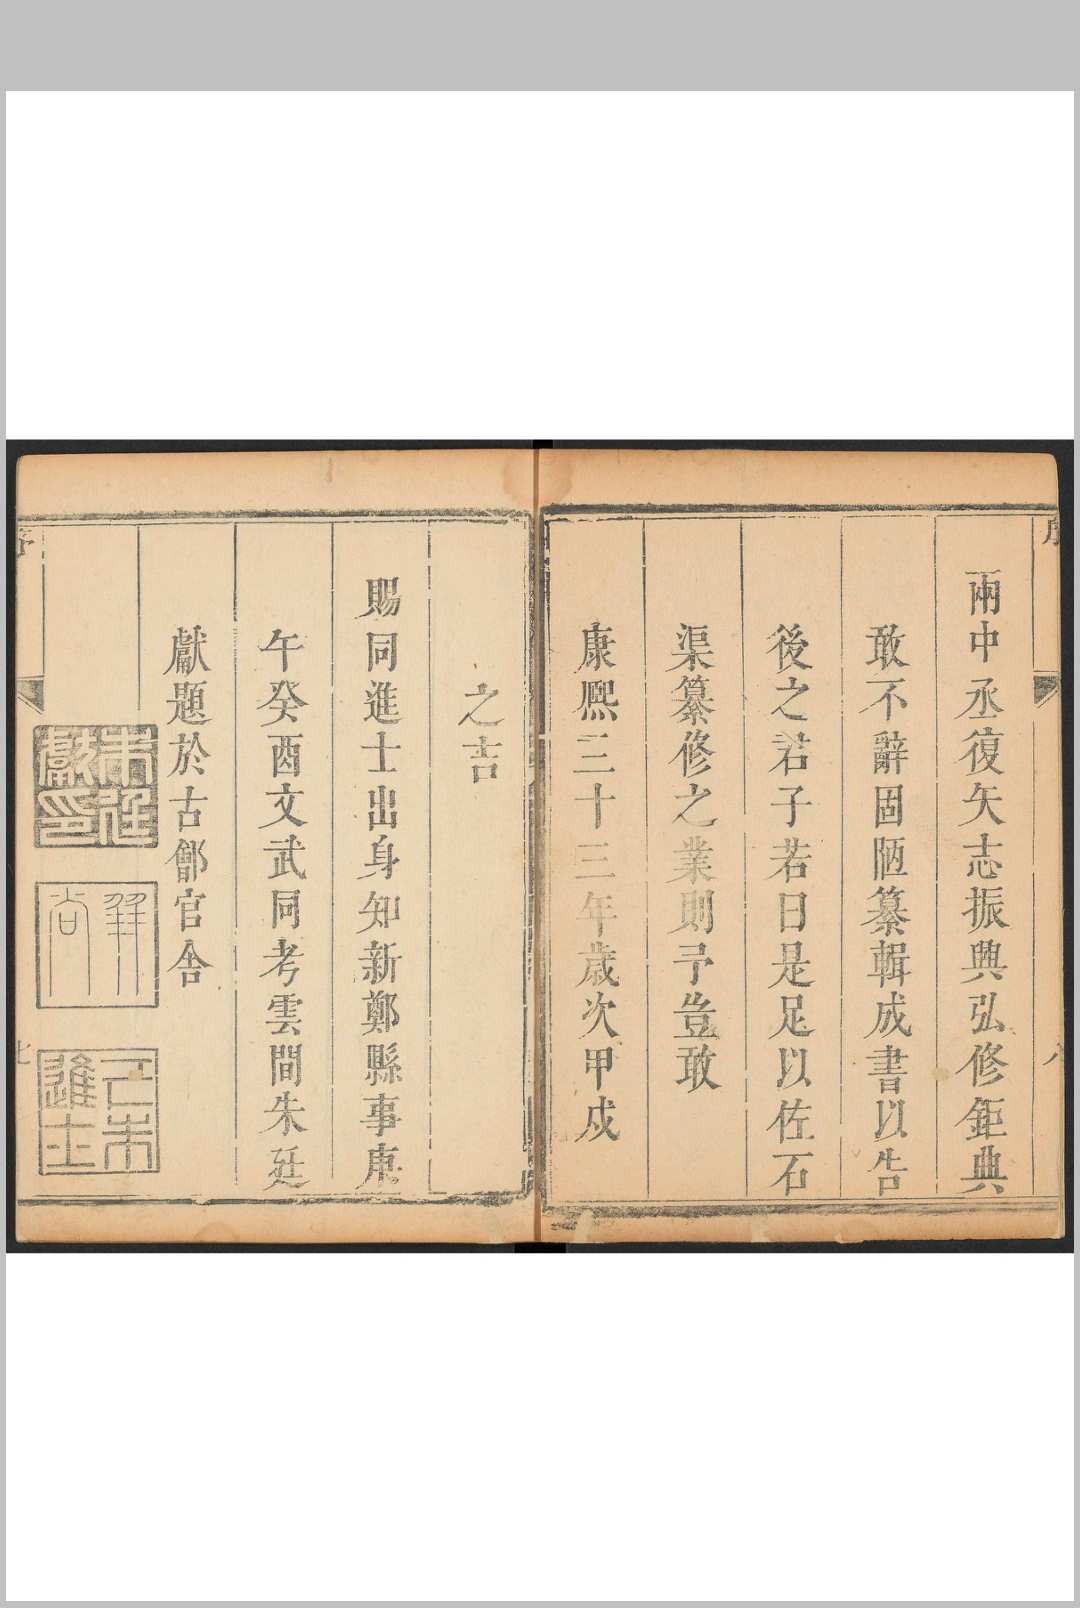 兩中丞復矢志振興弘修鉅典
敢不辭固陋纂輯成書以告
後之君子若曰是足以佐石
渠纂修之業則予豈敢
康熙三十三年歲次甲戌
之吉
賜同進士出身知新鄭縣事庚
午癸酉文武同考雲間朱廷
獻題於古鄶官舍
朱廷獻印
己未進士
序
八
序
七